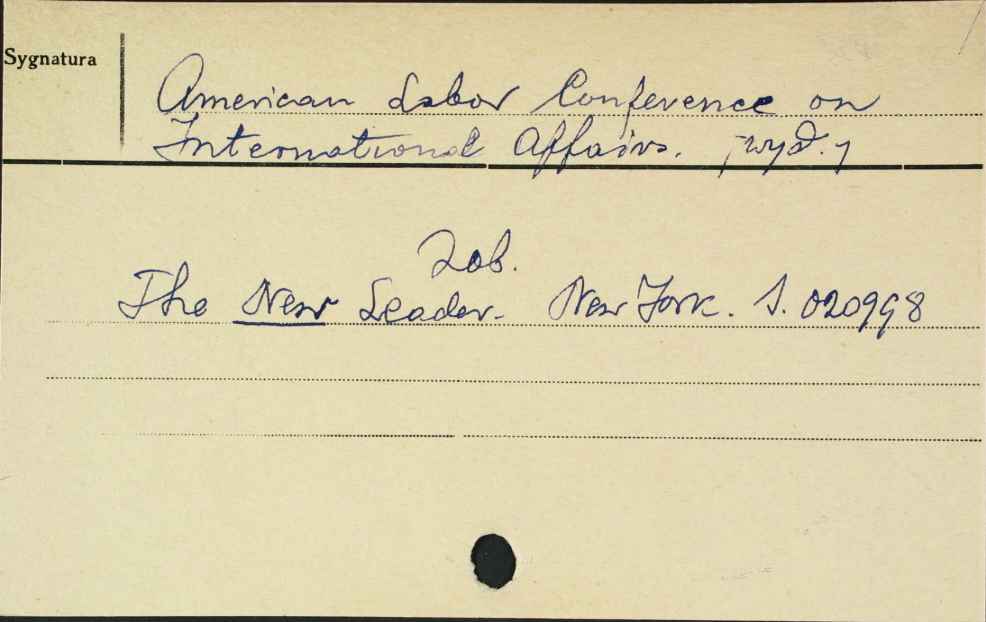 Sygnatura
American Labor Conference on
International Affairs. [wyd.]
Zob.
The New Leader. New York. S. 020998